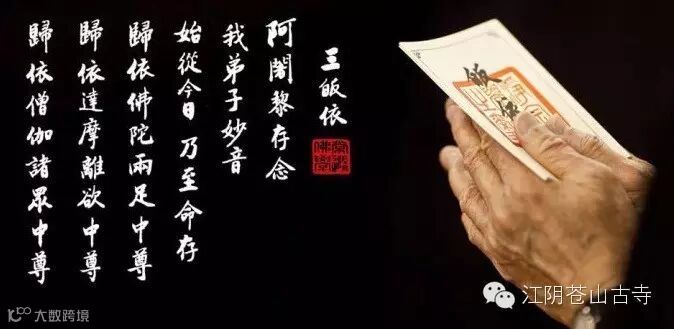 三皈依
阿闍黎存念
我弟子妙音
始從今日乃至命存
歸依佛陀兩足中尊
歸依達摩離欲中尊
歸依僧伽諸眾中尊
皈依
江阴苍山古寺
大数跨境